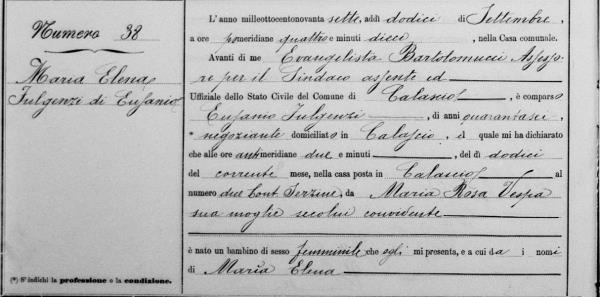 Numero 38
Maria Elena
Fulgenzi di Eufanio
(*) S'indichi la professione o la condizione.
L'anno milleottocentonovanta sette, addì dodici di Settembre,
a ore pomeridiane quattro e minuti dieci, nella Casa comunale.
Avanti di me Evangelista Bartolomucci Assesso-
re per il Sindaco assente ed
Uffiziale dello Stato Civile del Comune di Calascio, è comparso
Eufanio Fulgenzi, di anni quarantasei,
* negoziante domiciliato in Calascio, il quale mi ha dichiarato
che alle ore antimeridiane due e minuti, del dì dodici
del corrente mese, nella casa posta in Calascio al
numero due Cont. Terzine, da Maria Rosa Vespa
sua moglie secolui convivente
è nato un bambino di sesso femminile che egli mi presenta, e a cui da i nomi
di Maria Elena